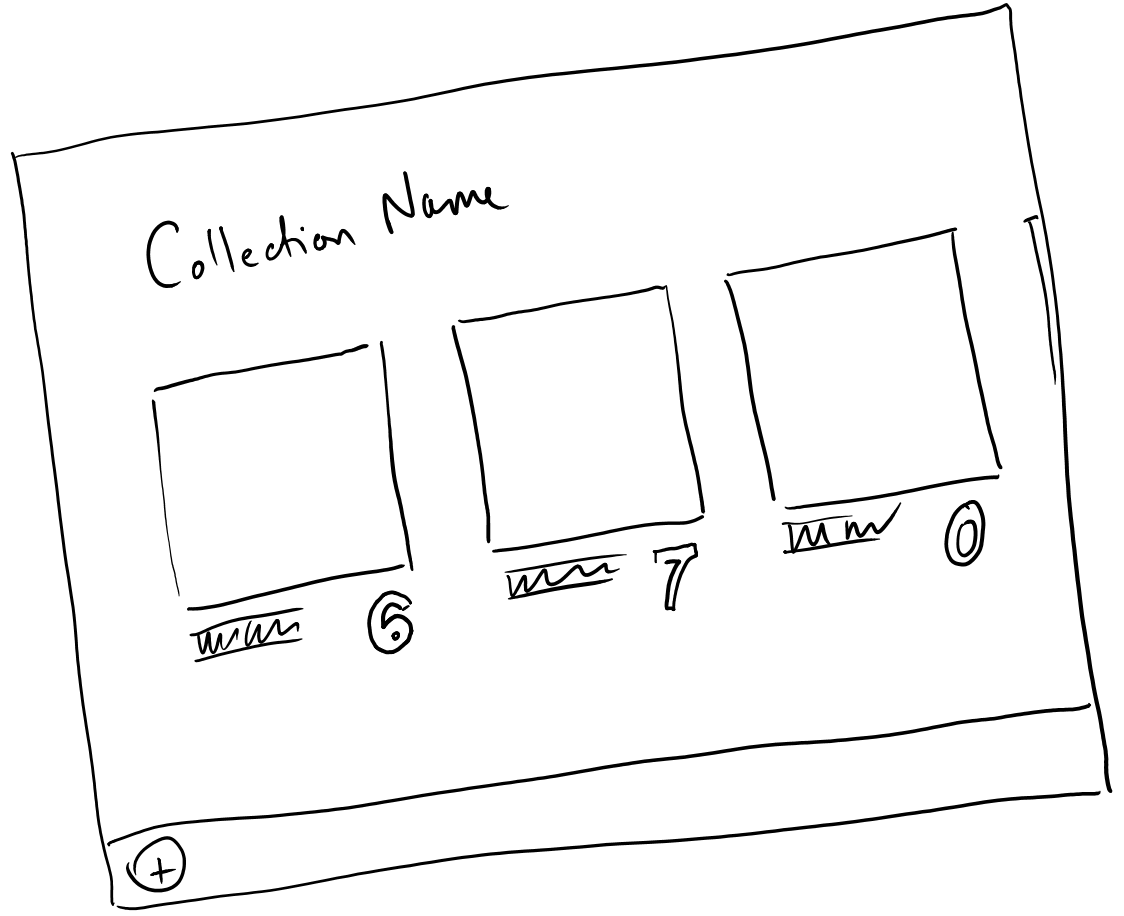 Collection Name
6
7
0
+